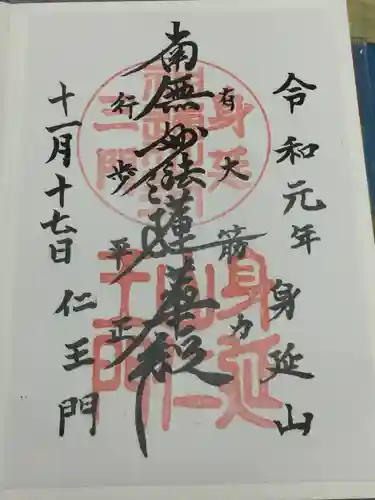 令和元年
身延山
有大筋力
南無妙法蓮華経
行歩平正
十一月十七日
仁王門